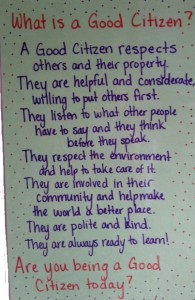 What is a Good Citizen?
A Good Citizen respects
others and their property.
They are helpful and considerate,
willing to put others first.
They listen to what other people
have to say and they think
before they speak.
They respect the environment
and help to take care of it.
They are involved in their
community and help make
the world a better place.
They are polite and kind.
They are always ready to learn!
Are you being a Good
Citizen today?